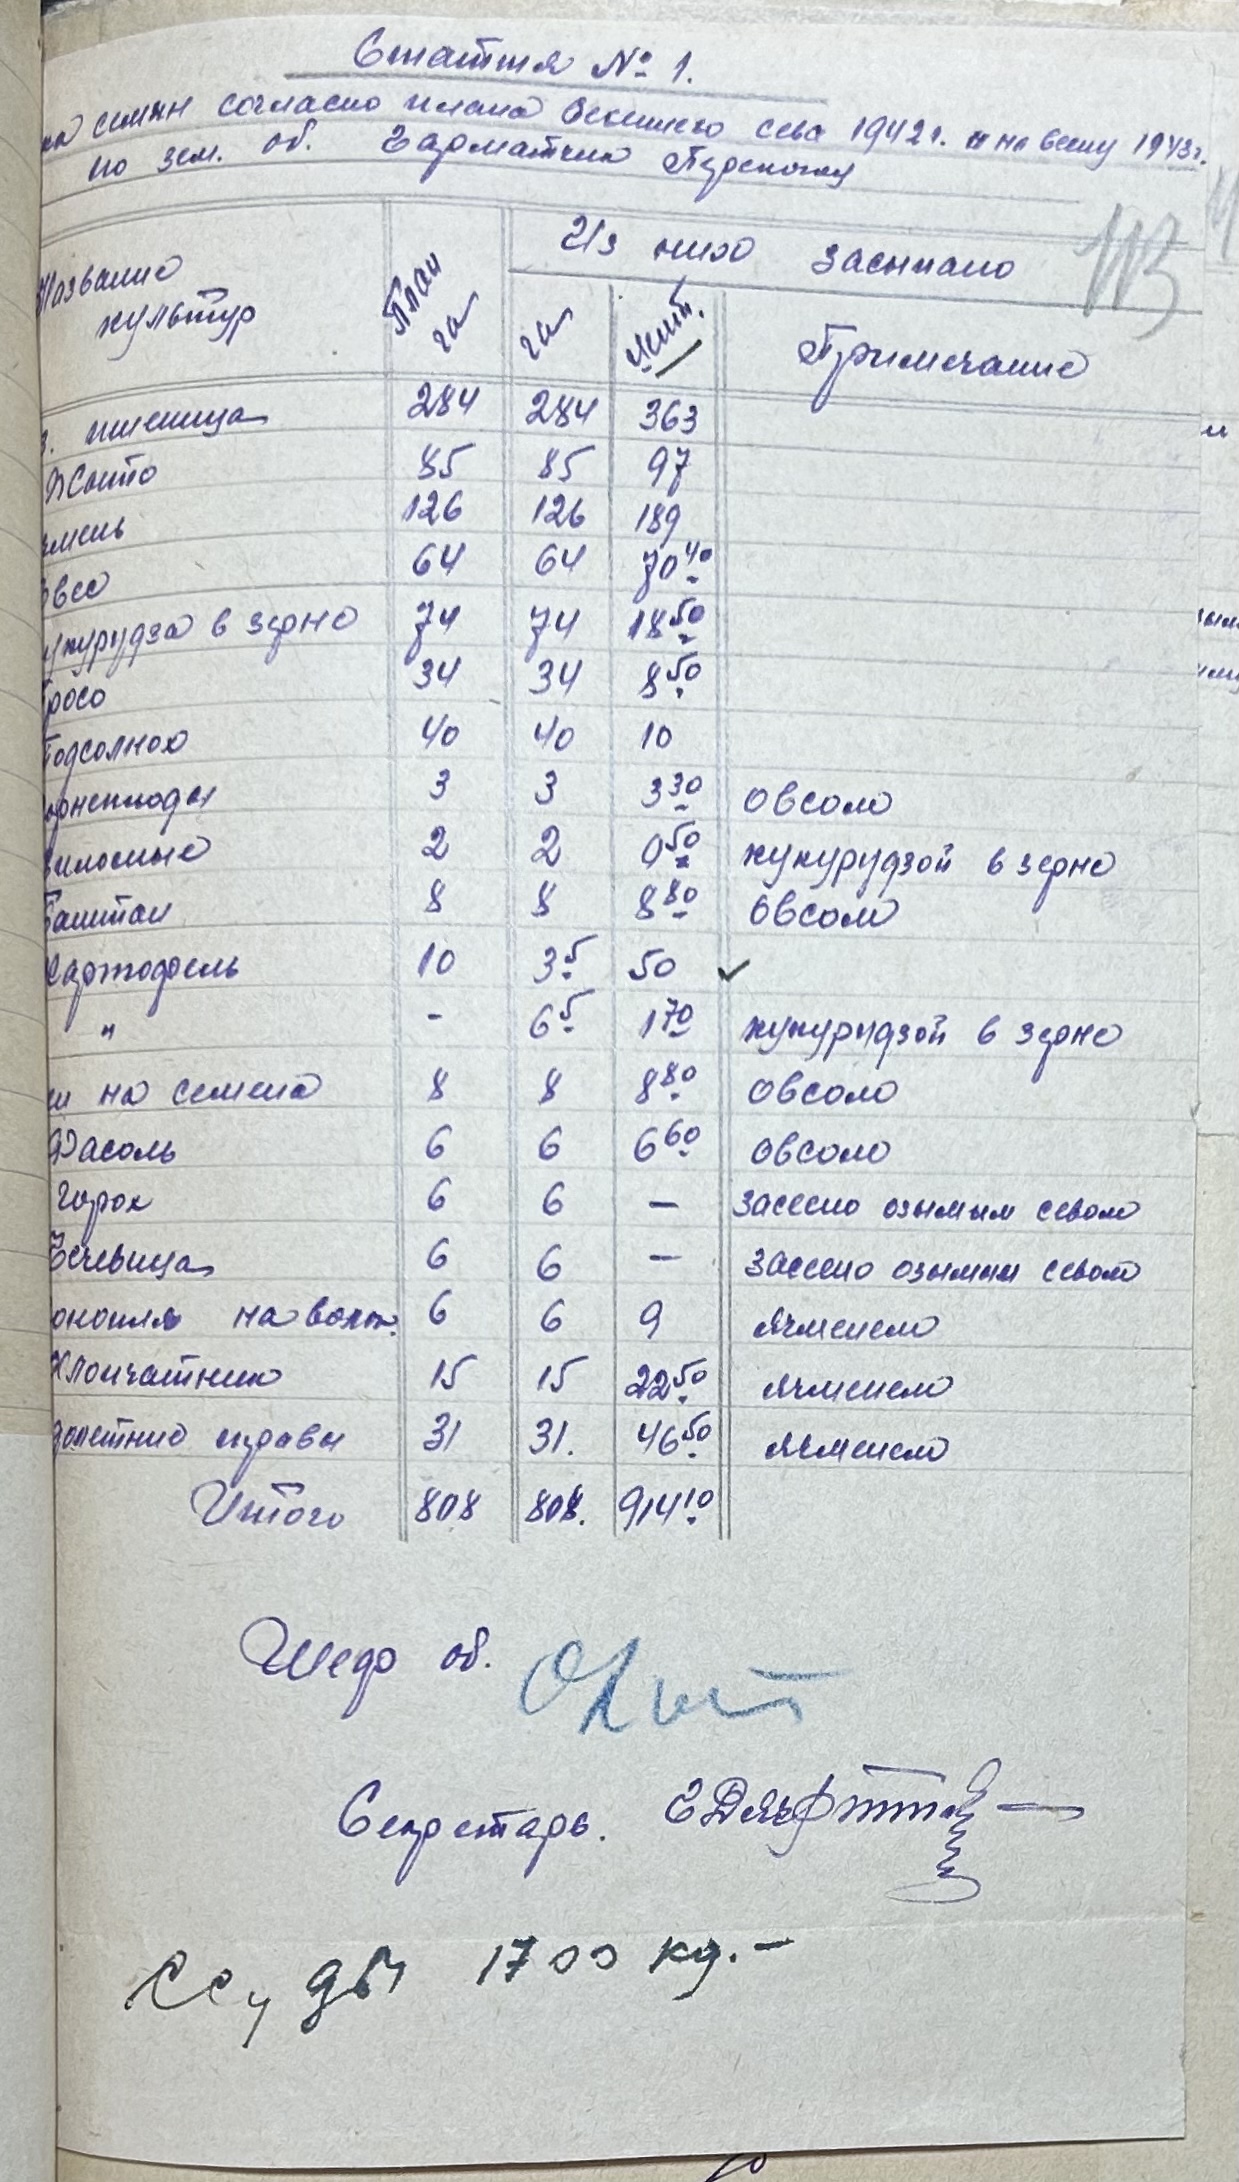 Статтья № 1.
на семян согласно плана весеннего сева 1942 г. и на весну 1943 г.
по зем. об.
113
Название культур
План га
Из них засыпано
га
цнт.
Примечание
з. пшеница 284 284 363
Жито 85 85 97
чмень 126 126 189
Овес 64 64 70 40
укурудза в зерне 74 74 18 50
Просо 34 34 8 50
Подсолнох 40 40 10
орнеплоды 3 3 3 30 овсом
силосные 2 2 0 50 кукурудзой в зерне
Баштан 8 8 8 80 Овсом
Картофель 10 3 5 50 ✓
" - 6 5 1 70 кукурудзой в зерне
на семена 8 8 8 80 овсом
Фасоль 6 6 6 60 овсом
Горох 6 6 — засеено озымым севом
Чечевица 6 6 — засеено озымым севом
онопля на волок. 6 6 9 ячменем
Хлопчатник 15 15 22 50 ячменем
долетние травы 31 31. 46 50 ячменем
Итого 808 808. 914 10
Шеф об.
Секретарь.
Ссуды 1700 кг. —